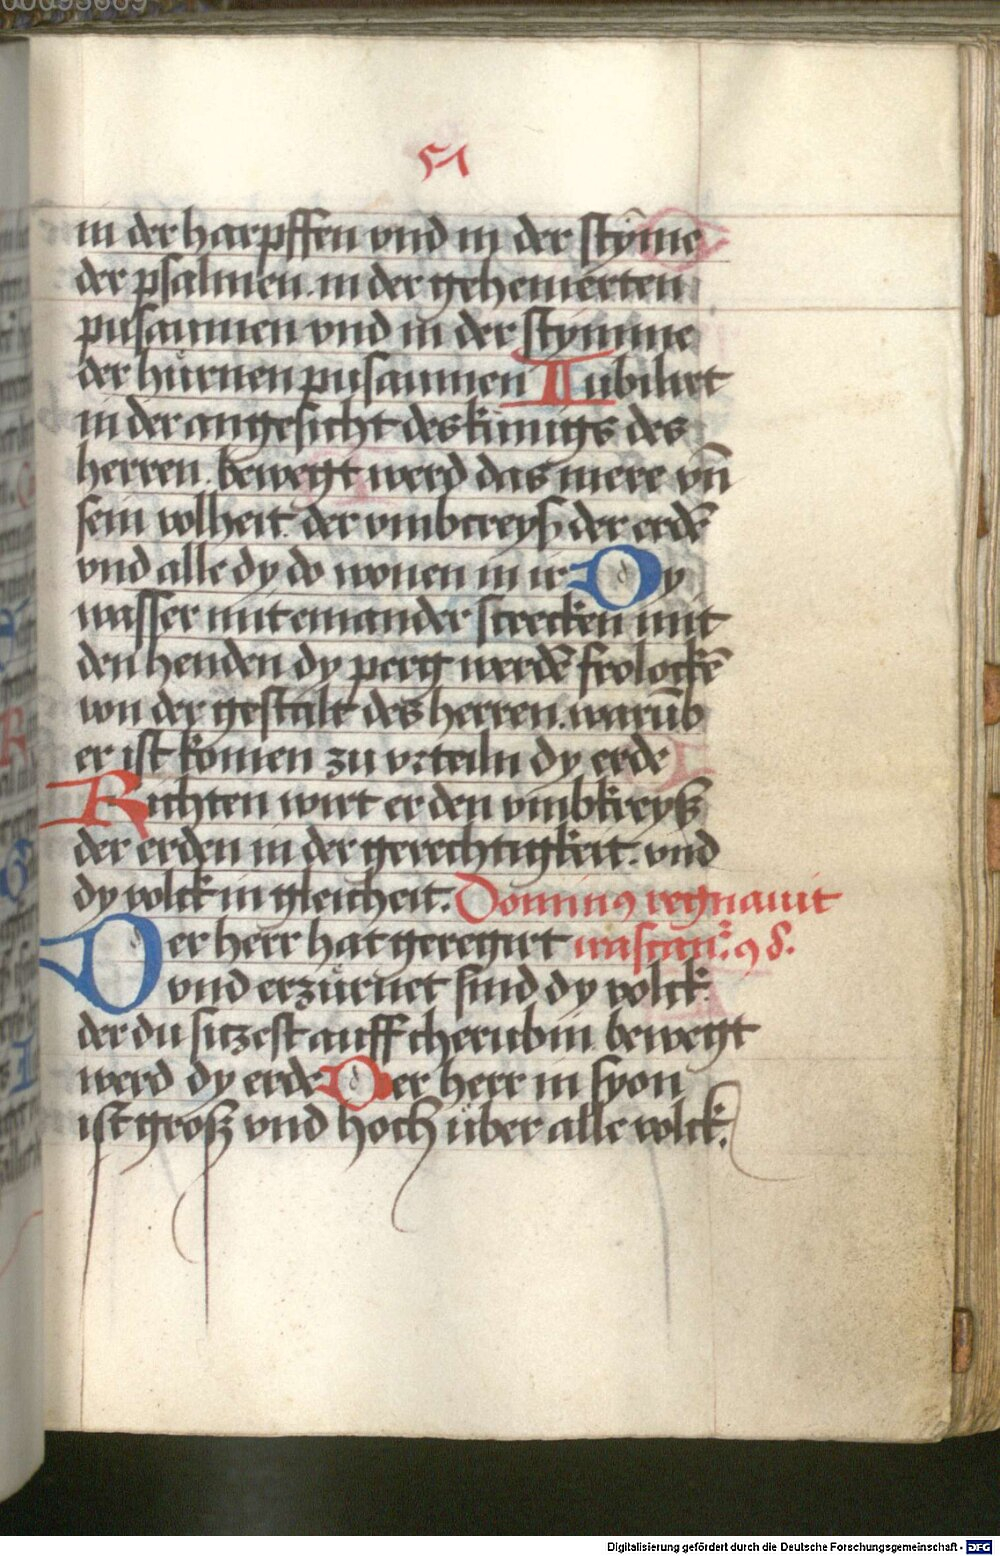 51
in der harpffen vnd in der stym̄e
der psalmen. in der gehemerten
pusaunnen vnd in der stymme
der hürnen pusaunnen Iubilirt
in der angesicht des künigs des
herren. bewegt werd das mere vn̄
sein vollheit. der vmbcreyß der erdē
vnd alle dy do wonen in ir Dy
wasser mit einander strecken mit
den henden dy perg werdē frolockē
von der gestalt des herren. warūb
er ist komen zu vrteiln dy erde
Richten wirt er den vmbkreyß
der erden in der gerechtigkeit. vnd
dy volck in gleicheit. Dominus regnauit
Der herr hat geregirt
vnd erzürnet sind dy volck.
der du sitzest auff cherubin bewegt
werd dy erde Der herr in syon
ist groß vnd hoch über alle volck.
Digitalisierung gefördert durch die Deutsche Forschungsgemeinschaft - DFG